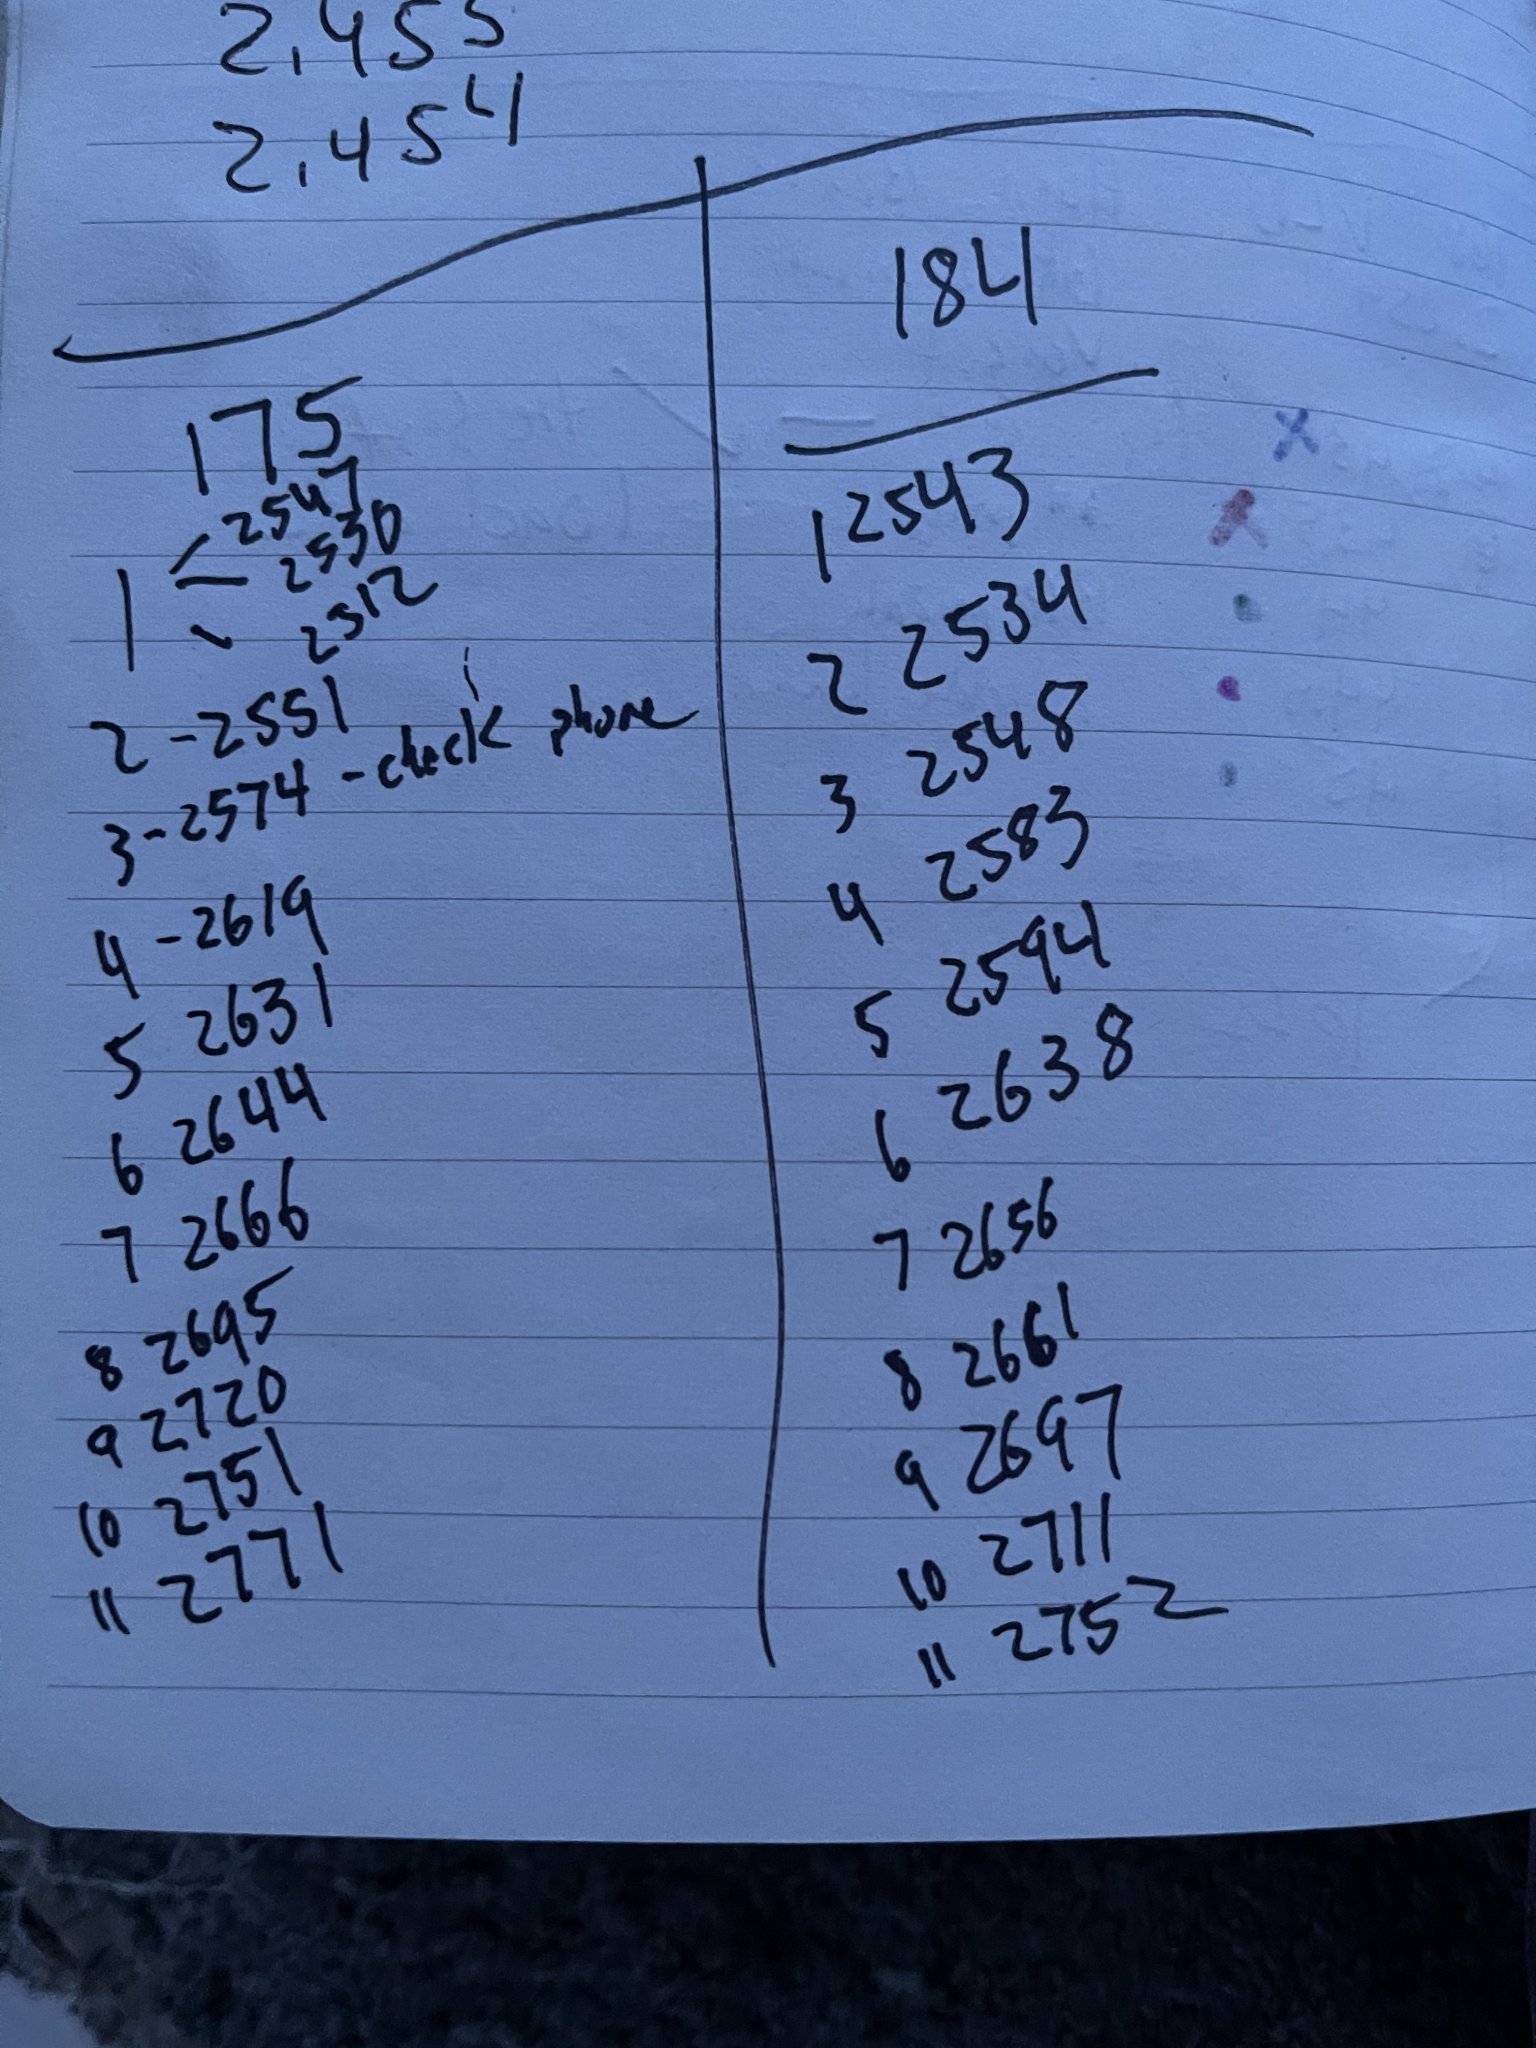 2.455
2.454
175
1
2547
2530
2512
2 - 2551
3 - 2574 - check phone
4 - 2619
5 2631
6 2644
7 2666
8 2695
9 2720
10 2751
11 2771
184
1 2543
2 2534
3 2548
4 2583
5 2594
6 2638
7 2656
8 2661
9 2697
10 2711
11 2752